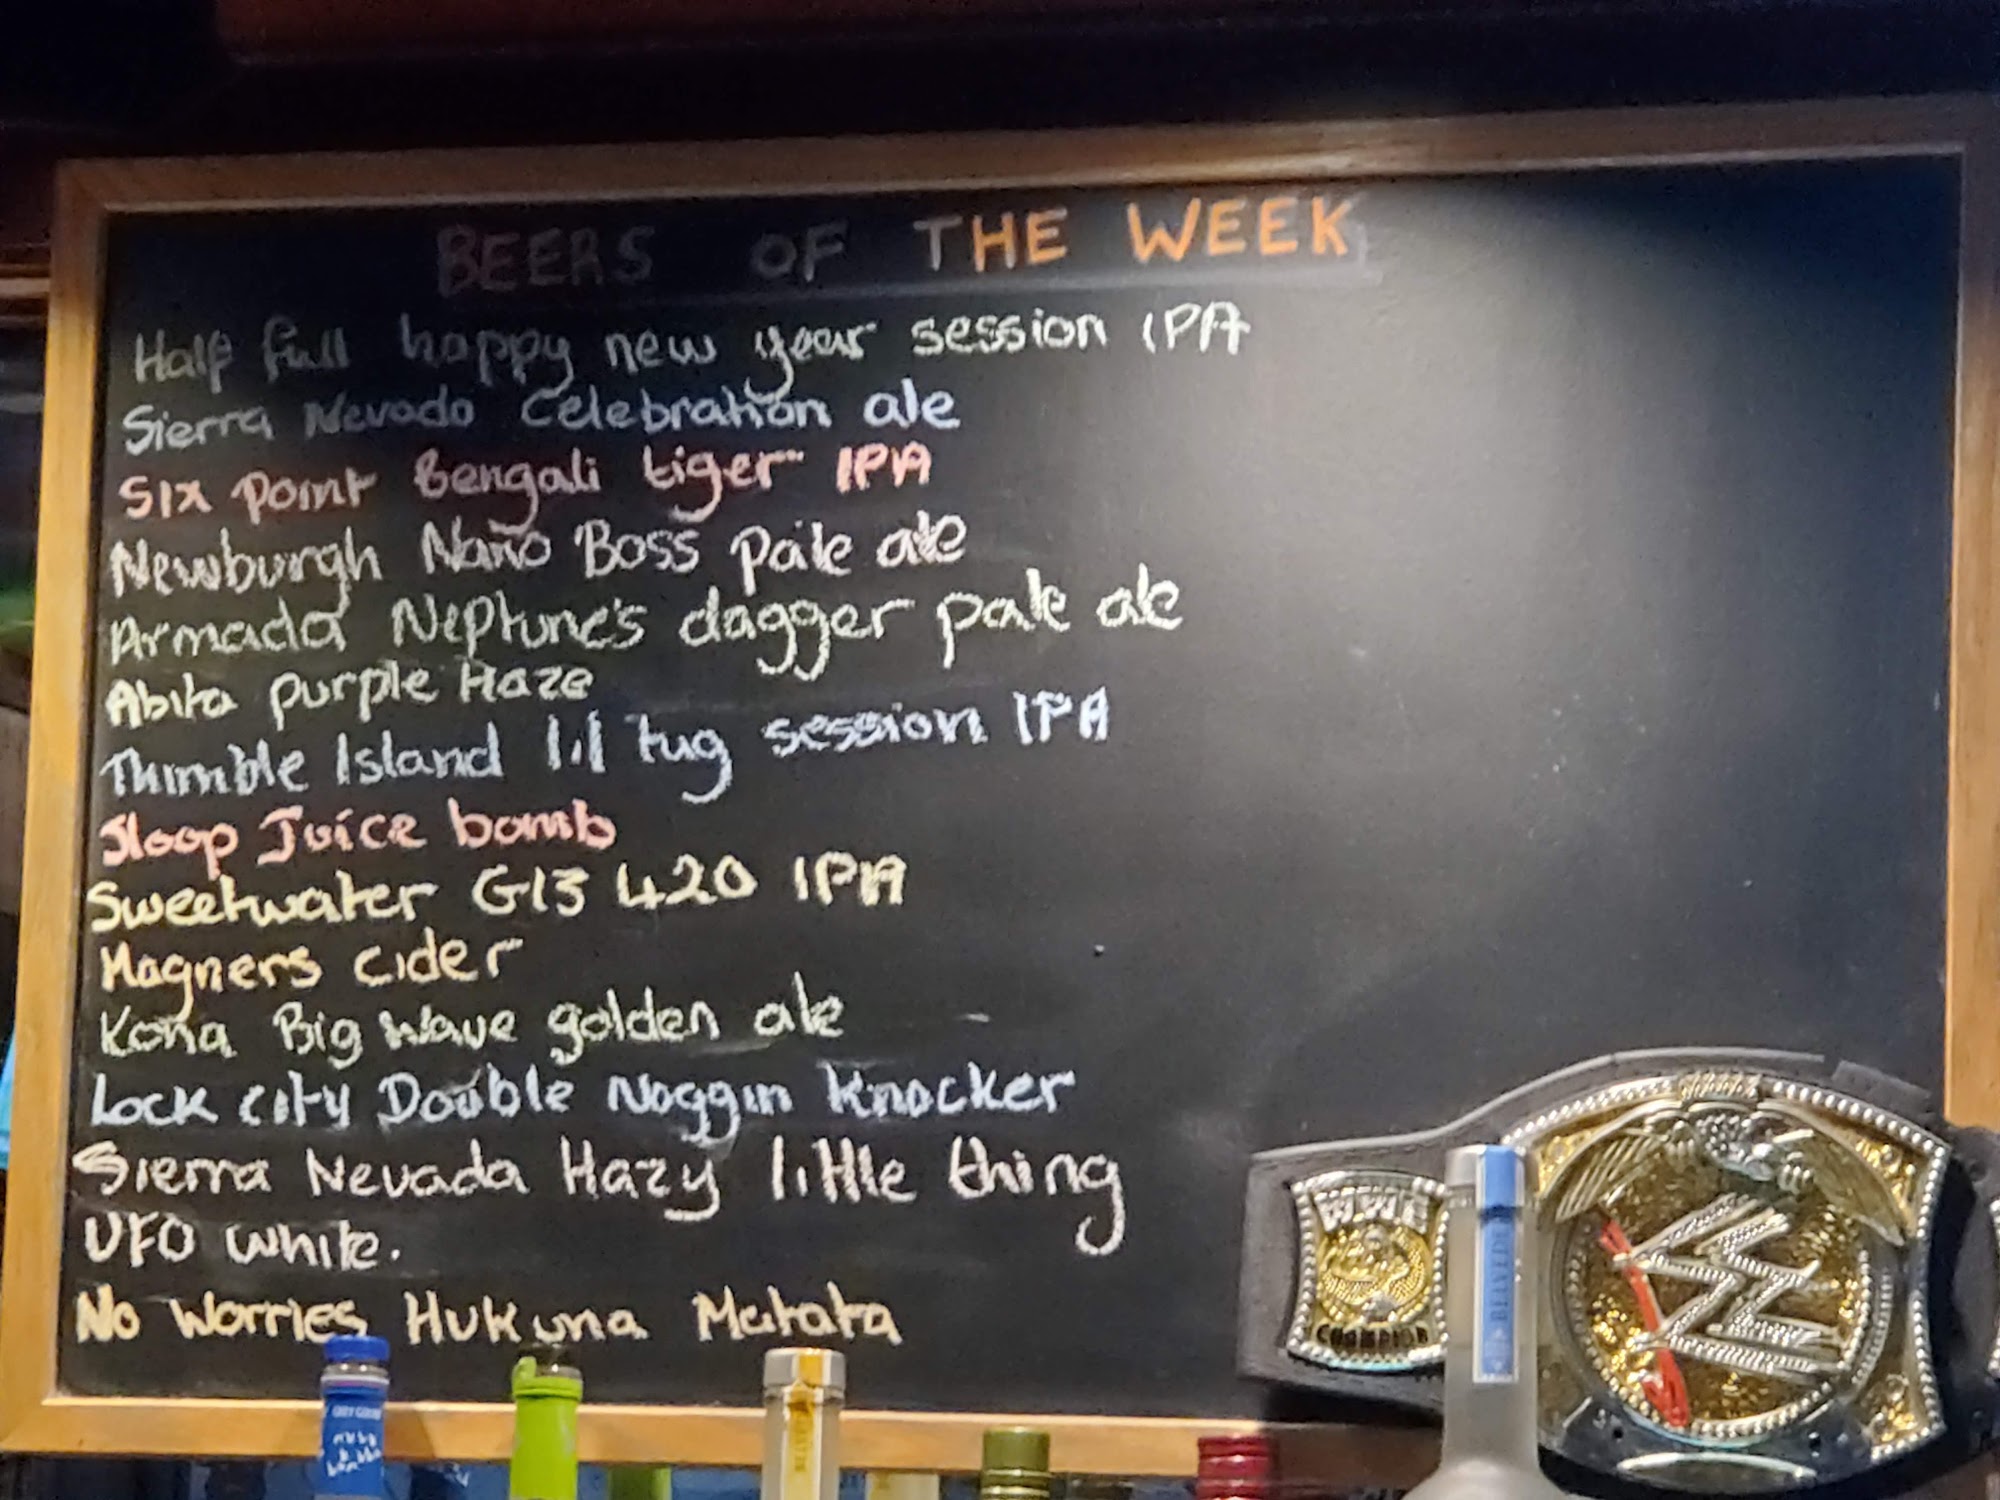 BEERS OF THE WEEK
Half full happy new year session IPA
Sierra Nevada Celebration ale
Six point Bengali tiger IPA
Newburgh Nano Boss pale ale
Armada Neptune's dagger pale ale
Abita purple Haze
Thimble Island lil tug session IPA
Sloop Juice bomb
Sweetwater G13 420 IPA
Magners cider
Kona Big Wave golden ale
Lock City Double Noggin Knocker
Sierra Nevada Hazy little thing
UFO White.
No Worries Hukuna Matata
WWE
CHAMPION
W
BELVEDERE